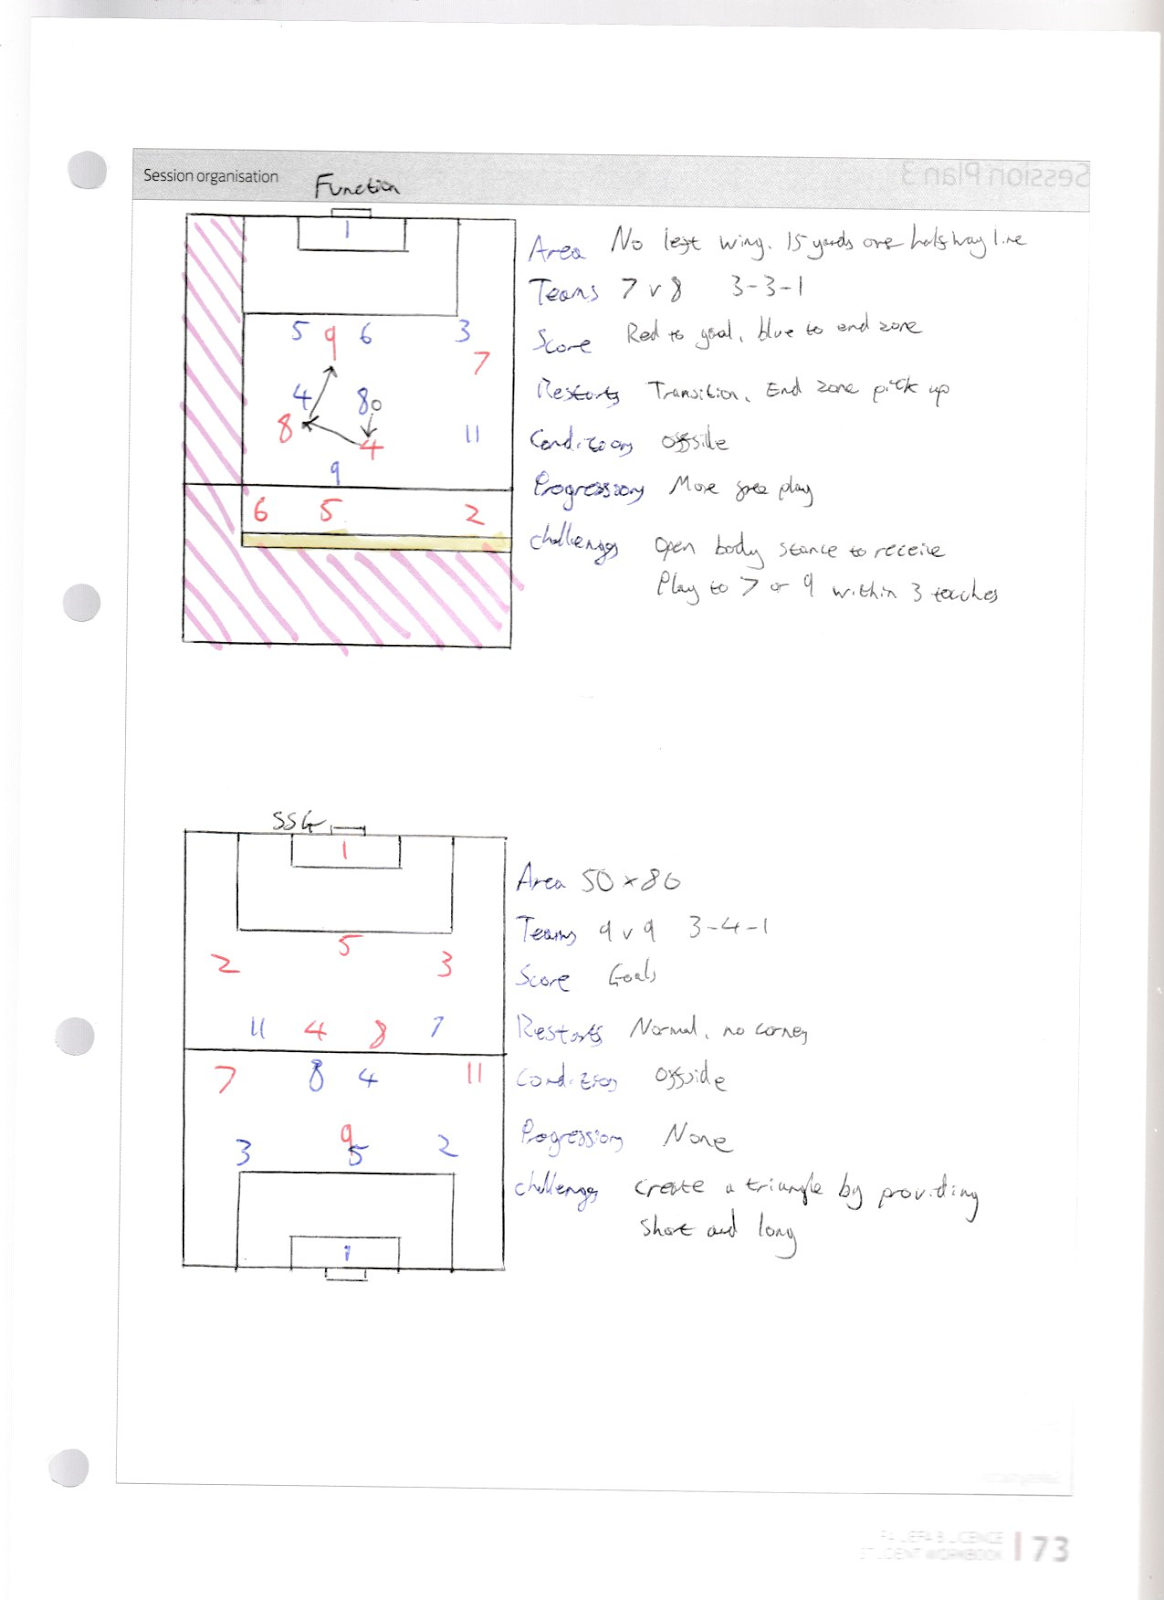 Session organisation Function
Session Plan 3
1
Area No left wing. 15 yards over halfway line
Teams 7 v 8 3-3-1
5 9 6 3
Score Red to goal, blue to end zone
7
4 8
Restarts Transition, End zone pick up
8 4 11
Conditions offside
9
Progressions More free play
6 5 2
Challenges Open body stance to receive
Play to 7 or 9 within 3 touches
SSG
1
Area 50 x 80
Teams 9 v 9 3-4-1
5
2 3
Score Goals
11 4 8 7
Restarts Normal, no corners
7 8 4 11
Condition offside
9
Progressions None
3 5 2
Challenges Create a triangle by providing
short and long
1
FA UEFA B LICENCE
STUDENT WORKBOOK | 73